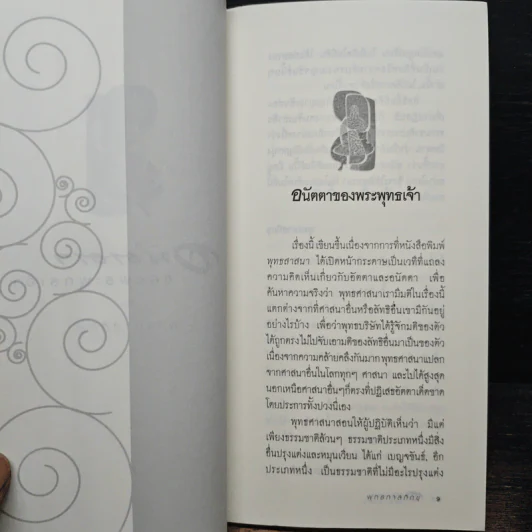 อนัตตาของพระพุทธเจ้า
เรื่องนี้ เขียนขึ้นเนื่องจากการที่หนังสือพิมพ์
พุทธสาสนา ได้เปิดหน้ากระดาษเป็นเวทีที่แถลง
ความคิดเห็นเกี่ยวกับอัตตาและอนัตตา เพื่อ
ค้นหาความจริงว่า พุทธศาสนาเรามีมติในเรื่องนี้
แตกต่างจากที่ศาสนาอื่นหรือลัทธิอื่นเขามีกันอยู่
อย่างไรบ้าง เพื่อว่าพุทธบริษัทได้รู้จักมติของตัว
ได้ถูกตรงไม่ไปจับเอามติของลัทธิอื่นมาเป็นของตัว
เนื่องจากความคล้ายคลึงกันมาก พุทธศาสนาแปลก
จากศาสนาอื่นในโลกทุกๆ ศาสนา และไปได้สูงสุด
นอกเหนือศาสนาอื่นๆ ก็ตรงที่ปฏิเสธอัตตาเด็ดขาด
โดยประการทั้งปวงนี่เอง
พุทธศาสนาสอนให้ผู้ปฏิบัติเห็นว่า มีแต่
เพียงธรรมชาติล้วนๆ ธรรมชาติประเภทหนึ่งมีสิ่ง
อื่นปรุงแต่งและหมุนเวียน ได้แก่ เบญจขันธ์, อีก
ประเภทหนึ่ง เป็นธรรมชาติที่ไม่มีอะไรปรุงแต่ง